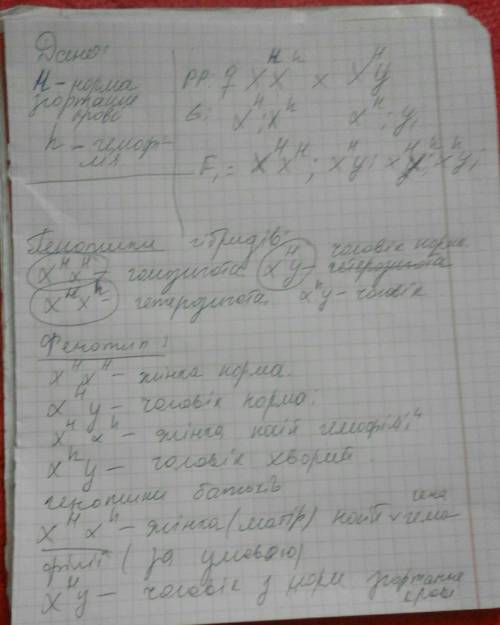 Дано:
H - норма
згортання
крові
h - гемофі-
лія
PP: ♀ X^H X^h x X^H y
G: x^H; x^h x^H; y;
F₁ = X^H X^H; X^H y; x^H x^h; x^h y;
Генотипи гібридів:
x^H x^H - гомозигота x^H y - чоловік норма
гетерозигота
x^H x^h - гетерозигота x^h y - чоловік
Фенотип:
x^H x^H - жінка норма.
x^H y - чоловік норма;
x^H x^h - жінка носій гемофілії
x^h y - чоловік хворий.
генотипи батьків
x^H x^h - жінка (матір) носій гена гемо-
філії (за умовою)
x^H y - чоловік з норм згортання
крові